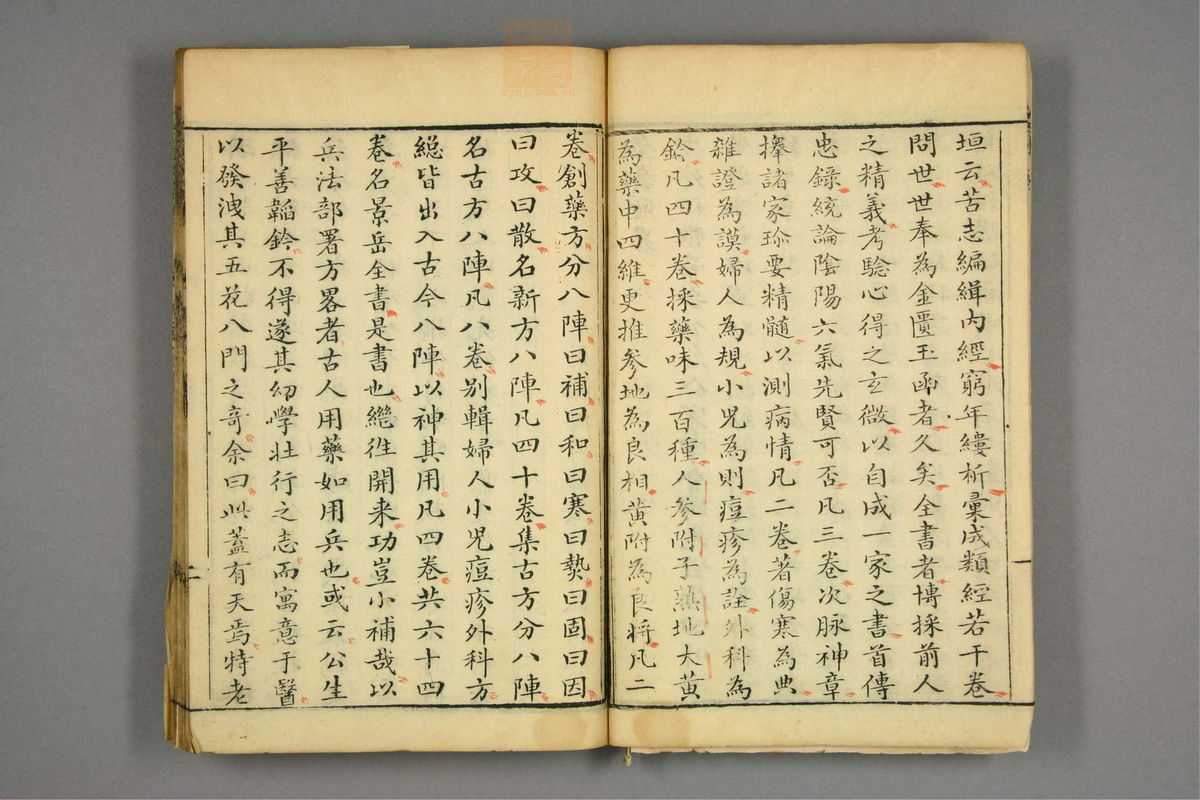 垣云苦志編緝內經窮年縷析彙成類經若干卷
問世世奉為金匱玉函者久矣全書者博採前人
之精義考驗心得之玄微以自成一家之書首傳
忠錄統論陰陽六氣先賢可否凡三卷次脉神章
擇諸家珎要精髓以測病情凡二卷著傷寒為典
雜證為謨婦人為規小兒為則痘疹為詮外科為
鈐凡四十卷採藥味三百種人參附子熟地大黃
為藥中四維更推參地為良相黃附為良將凡二
卷創藥方分八陣曰補曰和曰寒曰熱曰固曰因
曰攻曰散名新方八陣凡四十卷集古方分八陣
名古方八陣凡八卷別輯婦人小兒痘疹外科方
緫皆出入古今八陣以神其用凡四卷共六十四
卷名景岳全書是書也繼徃開来功豈小補哉以
兵法部署方畧者古人用藥如用兵也或云公生
平善韜鈐不得遂其幼學壯行之志而寓意于醫
以發洩其五花八門之奇余曰此蓋有天焉特老